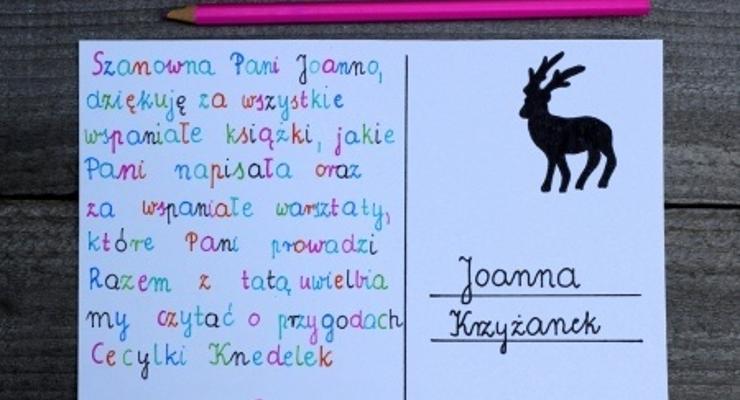 Szanowna Pani Joanno,
dziękuję za wszystkie
wspaniałe książki, jakie
Pani napisała oraz
za wspaniałe warsztaty,
które Pani prowadzi
Razem z tatą uwielbia
my czytać o przygodach
Cecylki Knedelek
Joanna
Krzyżanek